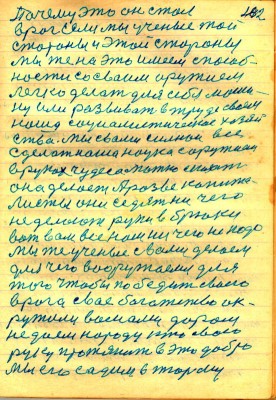 Почему это он стал 182
враг если мы ученые той
стороны и этой стороны
мы же на это имеем способ-
ности со своим оружием
легко делать для себя маши-
ну или развивать в труде своем
наше социалистическое хозяй
ства. Мы с вами сильны все
сделает наша наука с оружием
в руках чудеса можно сказать
она делает. А разве капита-
листы они сидят ни чего
не делают руки в брюки
вот вам все нам ни чего не надо
мы же ученые с вами делаем
для чего вооружаем для
того чтобы победить своего
врага свае багатство ок-
ружили васмали дарам
не даем народу кто свою
руку протянить в это добро
мы его садим в тюрьму